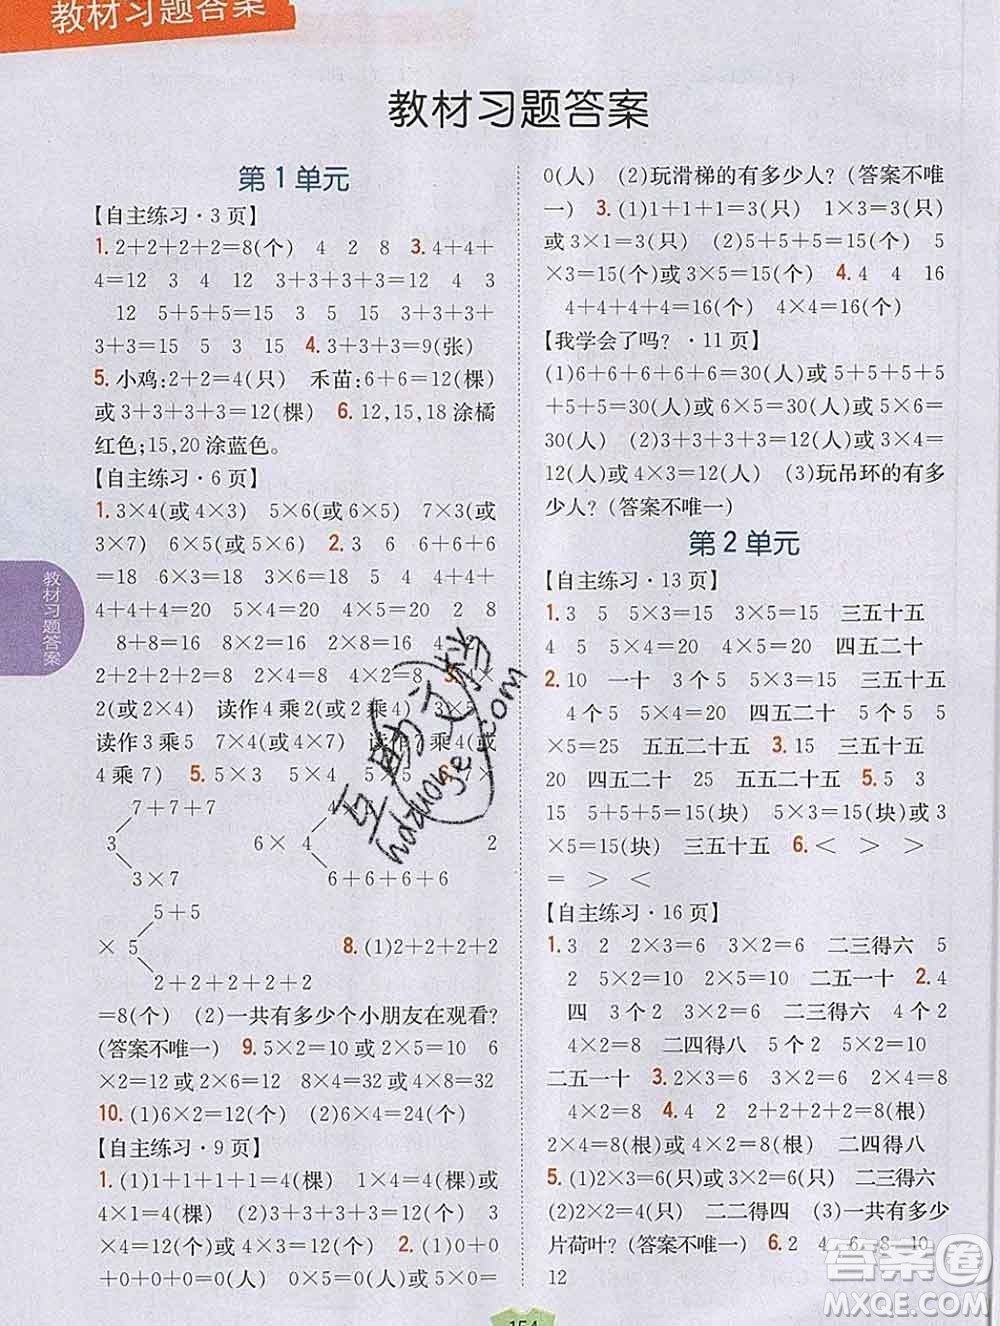 教材习题答案
教材习题答案
第1单元
【自主练习·3页】
1.2+2+2+2=8(个) 4 2 8 3.4+4+
4=12 3 4 12 3+3+3+3=12 4 3
12 5+5+5=15 3 5 15 3+3+3+
3+3=15 5 3 15 4.3+3+3=9(张)
5.小鸡:2+2=4(只) 禾苗:6+6=12(棵)
或3+3+3+3=12(棵) 6.12,15,18涂橘
红色;15,20涂蓝色。
【自主练习·6页】
1.3×4(或4×3) 5×6(或6×5) 7×3(或
3×7) 6×5(或5×6) 2.3 6 6+6+6
=18 6×3=18 3×6=18 5 4 4+4+
4+4+4=20 5×4=20 4×5=20 2 8
8+8=16 8×2=16 2×8=16 4 2
2+2+2+2=8 4×2=8 2×4=8
2(或2×4) 读作4乘2(或2乘4) 3×5
读作3乘5 7×4(或4×7) 乘4(或
4乘7) 5.5×3 5×4 5×5
7+7+7
3
3×7
6× 4 2
6+6+6+6
5+5
× 5
2+2+2+2+2
8.(1)2+2+2+2
=8(个) (2)一共有多少个小朋友在观看?
(答案不唯一) 9.5×2=10或2×5=10 6
×2=12或2×6=12 8×4=32或4×8=32
10.(1)6×2=12(个) (2)6×4=24(个)
【自主练习·9页】
1.(1)1+1+1+1=4(棵) 1×4=4(棵)或
4×1=4(棵) (2)3+3+3+3=12(个) 3
×4=12(个)或4×3=12(个) 2.(1)0+0
+0+0+0=0(人) 0×5=0(人)或5×0=
0(人) (2)玩滑梯的有多少人?(答案不唯
一) 3.(1)1+1+1=3(只) 1×3=3(只)
或3×1=3(只) (2)5+5+5=15(个) 5
×3=15(个)或3×5=15(个) 4.4 4 16
4+4+4+4=16(个) 4×4=16(个)
【我学会了吗?·11页】
(1)6+6+6+6+6=30(人)或5+5+5+5
+5+5=30(人) 6×5=30(人)或5×6=
30(人) (2)3+3+3+3=12(人) 3×4=
12(人)或4×3=12(人) (3)玩吊环的有多
少人?(答案不唯一)
第2单元
【自主练习·13页】
1.3 5 5×3=15 3×5=15 三五十五
4 5 5×4=20 4×5=20 四五二十
2.10 一十 3个5 3×5=15 三五十五
4个5 4×5=20 四五二十 5个5 5
×5=25 五五二十五 3.15 三五十五
20 四五二十 25 五五二十五 5.5
3 15 5×3=15(块) 3×5=15(块)或3
×5=15(块) 三五十五 6.< > >
= > <
【自主练习·16页】
1.3 2 2×3=6 3×2=6 二三得六 5
2 5×2=10 2×5=10 二五一十 2.4
四 3个2 3×2=6 二三得六 4个2
4×2=8 二四得八 5个2 5×2=10
二五一十 3.2×2=4 3×2=6 2×4=8
4×2=8 4.4 2 2+2+2+2=8(根)
2×4=8(根)或4×2=8(根) 二四得八
5.(1)2×3=6(只) 3×2=6(只) 二三得六
(2)2×2=4(只) 二二得四 (3)一共有多少
片荷叶?(答案不唯一) 6.2 4 6 8 10
12
教材习题答案
154
互助文档
hdzuoye.com
答案圈
MXQE.COM